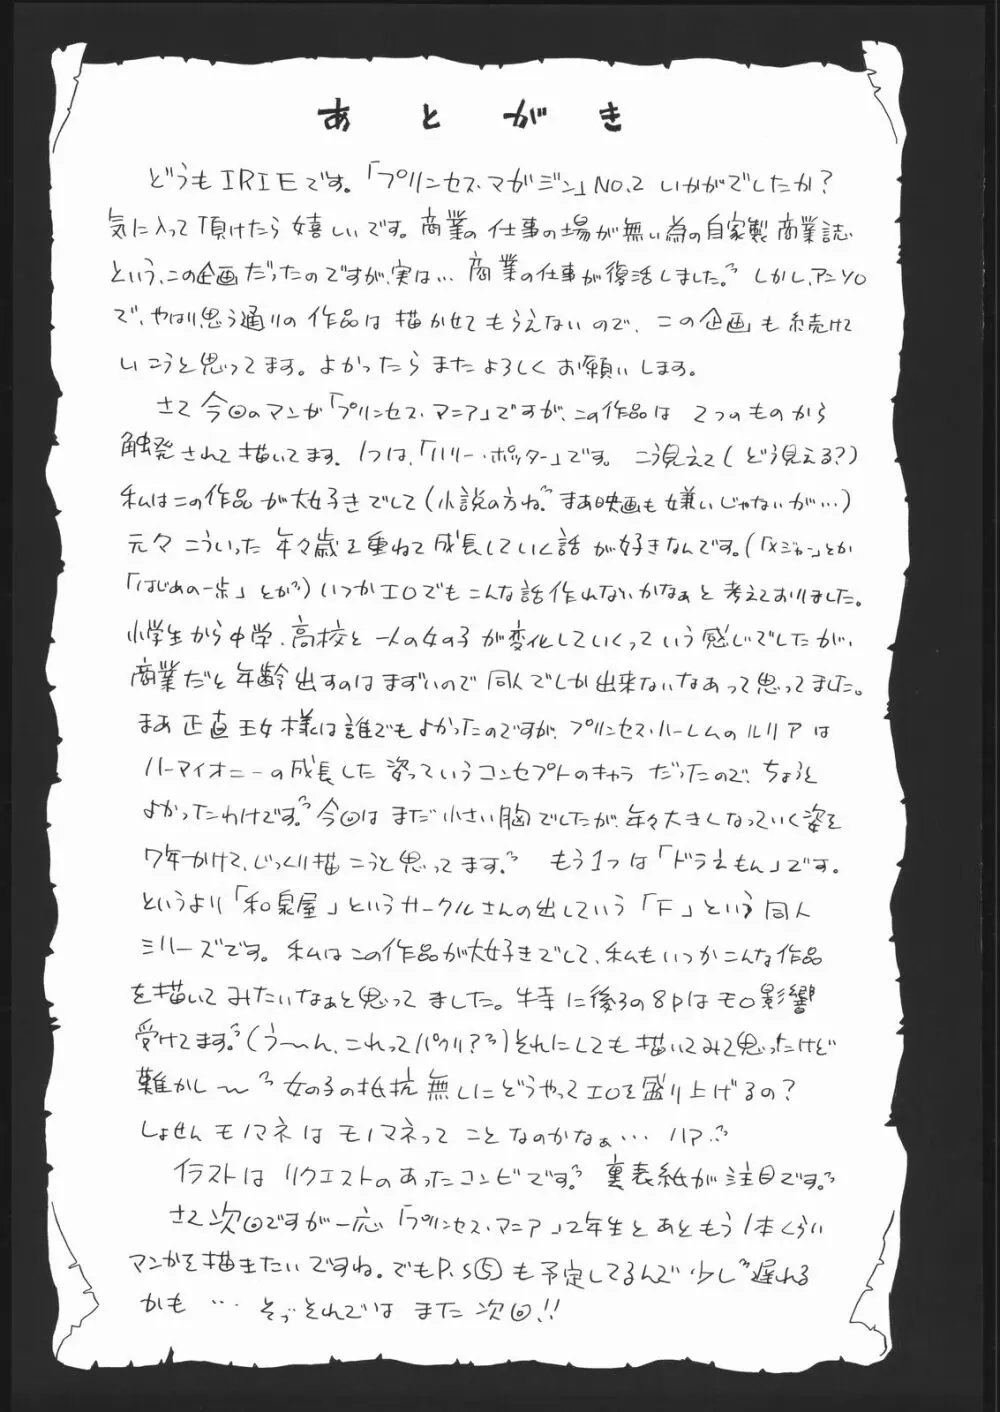 あとがき
どうもIRIEです。「プリンセス・マガジン」NO.2 いかがでしたか?
気に入って頂けたら嬉しいです。商業の仕事の場が無い為の自家製商業誌
という、この企画だったのですが、実は… 商業の仕事が復活しました。しかし、アンソロ
で、やはり思う通りの作品は描かせてもらえないので、この企画も続けて
いこうと思ってます。よかったらまたよろしくお願いします。
さて今回のマンガ「プリンセス・マニア」ですが、この作品は2つのものから
触発されて描いてます。1つは、「ハリー・ポッター」です。こう見えて(どう見える?)
私はこの作品が大好きでして(小説の方ね。まあ映画も嫌いじゃないが…)
元々こういった年々歳を重ねて成長していく話が好きなんです。(「メジャー」とか
「はじめの一歩」とか)いつかエロでもこんな話作れないかなぁと考えておりました。
小学生から中学、高校と一人の女の子が変化していくっていう感じでしたが、
商業だと年齢出すのはまずいので同人でしか出来ないなあって思ってました。
まあ正直王女様は誰でもよかったのですが、プリンセス・ハーレムのルリアは
ハーマイオニーの成長した姿っていうコンセプトのキャラだったので、ちょうど
よかったわけです。今回はまだ小さい胸でしたが、年々大きくなっていく姿を
7年かけて、じっくり描こうと思ってます。もう1つは「ドラえもん」です。
というより「和泉屋」というサークルさんの出している「F」という同人
シリーズです。私はこの作品が大好きでして、私もいつかこんな作品
を描いてみたいなぁと思ってました。特に後ろの8pはモロ影響
受けてます。(う〜ん、これってパクリ?)それにしても描いてみて思ったけど
難かし〜 女の子の抵抗無しにどうやってエロを盛り上げるの?
しょせんモノマネはモノマネってことなのかなぁ… ハァ…
イラストはリクエストのあったコンビです。裏表紙が注目です。
さて次回ですが一応「プリンセス・マニア」2年生とあともう1本くらい
マンガを描きたいですね。でもP.S⑤も予定してるんで少し遅れる
かも … そ、それではまた次回!!